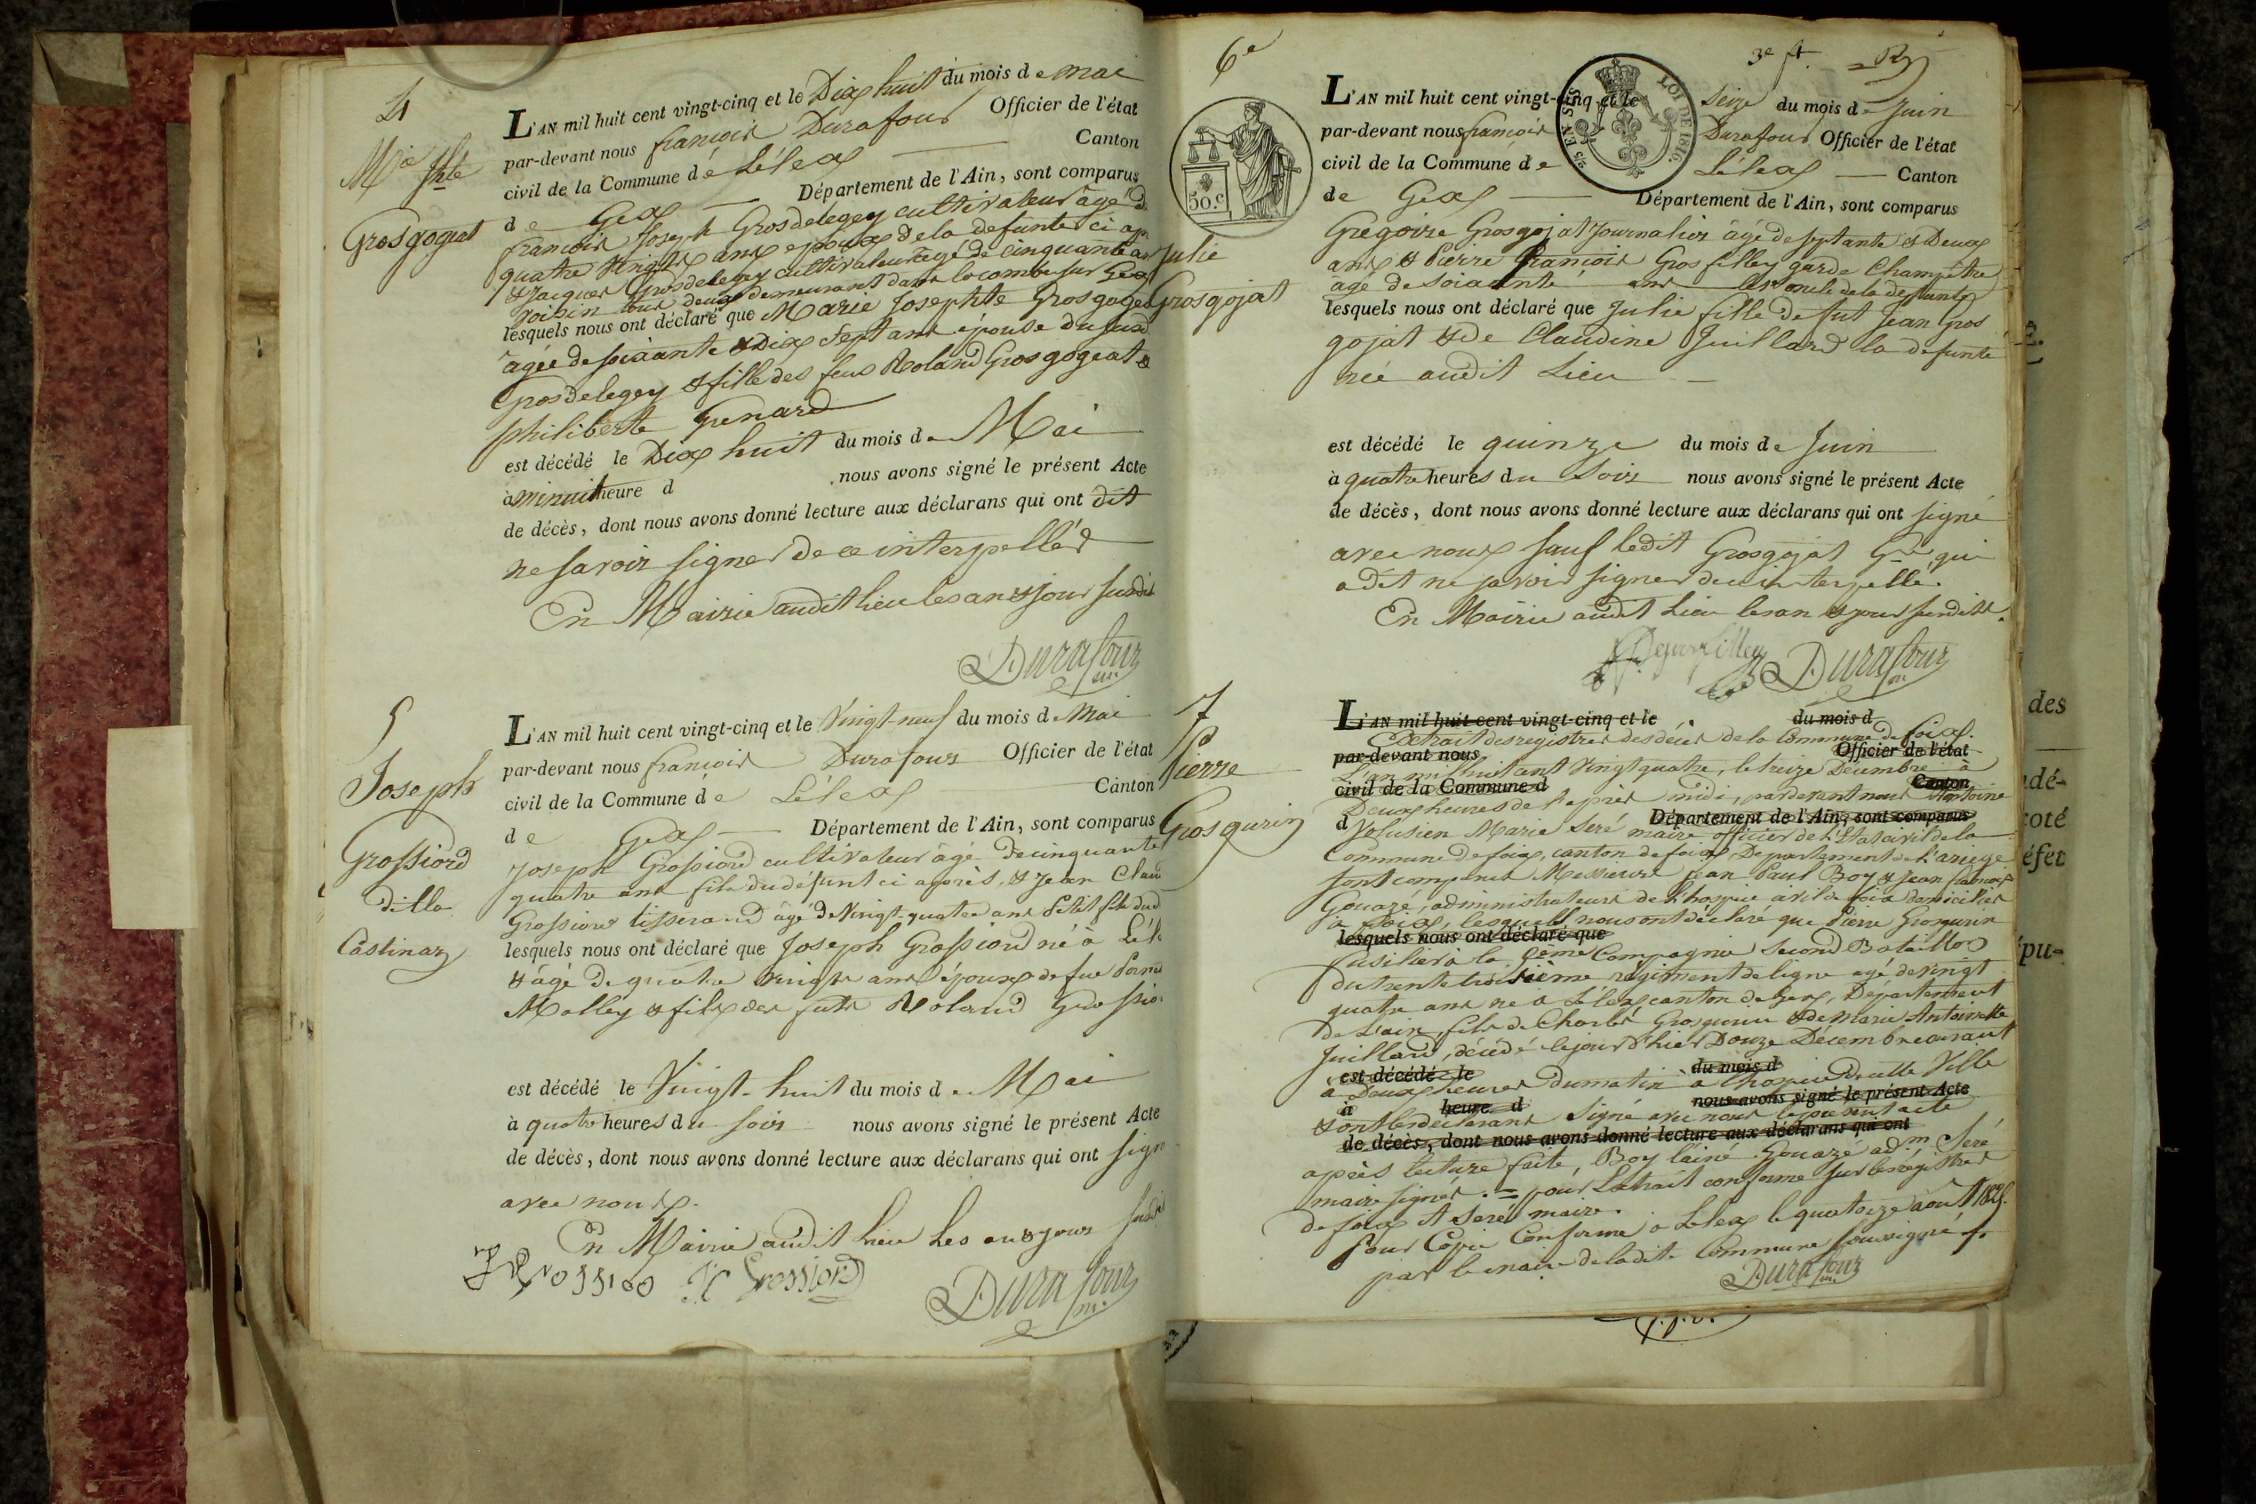 4
Mie Jhte
Grosgogeat
L'AN mil huit cent vingt-cinq et le Dix huit du mois de mai
par-devant nous françois Durafour Officier de l'état
civil de la Commune de Lélex Canton
de Gex Département de l'Ain, sont comparus
françois Joseph Grosdelegey cultivateur âgé de
quatre vingts ans epoux de la defunte ci ap
& Jacques Grosdelegey cultivateur âgé de cinquante an
voisin tous deux demeurant dans la combe sur Gex
lesquels nous ont déclaré que Marie Josephte Grosgogea
âgée de soixante & Dix sept ans épouse dudi
Grosdelegey & fille des feus Roland Grosgogeat &
philiberte Genard
est décédé le Dix huit du mois de Mai
à minuit heure d nous avons signé le présent Acte
de décès, dont nous avons donné lecture aux déclarans qui ont dit
ne savoir signer de ce interpellés
En Mairie audit lieu les an & jour susdit
Durafour m.
5
Joseph
Grossiord
dilla
Castinaz
L'AN mil huit cent vingt-cinq et le Vingt-neuf du mois de Mai
par-devant nous françois Durafour Officier de l'état
civil de la Commune de Lélex Canton
de Gex Département de l'Ain, sont comparus
Joseph Grossiord cultivateur âgé de cinquante
quatre ans fils du défunt ci après, & Jean Clau
Grossiord tisserand âgé de Vingt-quatre ans Petit fils dud
lesquels nous ont déclaré que Joseph Grossiord né à Lél
& âgé de quatre vingts ans époux de fue
Molley & fils des futs Roland Grossio
est décédé le Vingt-huit du mois de Mai
à quatre heures du soir nous avons signé le présent Acte
de décès, dont nous avons donné lecture aux déclarans qui ont sign
avec nous.
En Mairie audit lieu les an & jour susdit
J Grossiod JC Grossiord Durafour m.
6e
3e f. R
50 c
LOI DE 1816.
Julie
Grosgojat
L'AN mil huit cent vingt-cinq et le Seize du mois de Juin
par-devant nous françois Durafour Officier de l'état
civil de la Commune de Lélex Canton
de Gex Département de l'Ain, sont comparus
Grégoire Grosgojat Journalier âgé de septante & Deux
ans & Pierre françois Grosfilley garde Champêtre
âgé de soixante ans les oncle de la defunte
lesquels nous ont déclaré que Julie fille de fut Jean Gros
gojat & de Claudine Juillard la defunte
née audit Lieu
est décédé le quinze du mois de Juin
à quatre heures du Soir nous avons signé le présent Acte
de décès, dont nous avons donné lecture aux déclarans qui ont signé
avec nous sauf ledit Grosgojat Gre qui
a dit ne savoir signer de ce interpellé.
En Mairie audit Lieu les an & jour susdits.
Durafour m.
7
Pierre
Grosgurin
L'AN mil huit cent vingt-cinq et le du mois d
Extrait des registres des décès de la Commune de foix.
par-devant nous Officier de l'état
L'an mil huit cent Vingt quatre, le treize Décembre à
civil de la Commune d Canton
Deux heures de l'après midi, par devant nous Antoine
d Département de l'Ain, sont comparus
Volusien Marie Seré maire officier de l'Etat civil de la
Commune de foix, canton de foix Departement de l'ariège
sont comparus Messieurs Jean Paul Boy & Jean
Gouazé, administrateurs de l'hospice civil de foix domiciliés
à foix, lesquels nous ont déclaré que Pierre Grosgurin
lesquels nous ont déclaré que
fusilier à la Compagnie Second Bataillon
du trente troisième régiment de ligne agé de vingt
quatre ans né à Lélex canton de Gex, Département
de L'ain, fils de Charles Grosgurin & de Marie Antoinette
Juillard, décédé le jour d'hier Douze Décembre courant
est décédé le du mois d
à Deux heures du matin à l'hospice de cette Ville
à heure d nous avons signé le présent Acte
& ont les déclarans signé avec nous le présent acte
de décès, dont nous avons donné lecture aux déclarans qui ont
après lecture faite, Boy l'ainé. Gouazé adm. Seré
maire signés. = pour Extrait conforme sur les registres
de foix A Seré maire.
Pour Copie Conforme à Lélex le quatorze août 1825.
par le maire de la dite Commune soussigné.
Durafour m.
des
dé-
oté
éfet
pu-